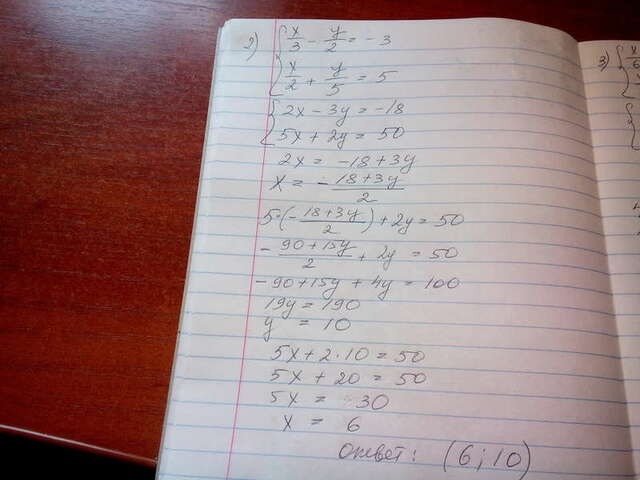 2) { x/3 - y/2 = -3
x/2 + y/5 = 5
{ 2x - 3y = -18
5x + 2y = 50
2x = -18 + 3y
x = - 18 + 3y / 2
5·(- 18 + 3y / 2) + 2y = 50
- 90 + 15y / 2 + 2y = 50
-90 + 15y + 4y = 100
19y = 190
y = 10
5x + 2·10 = 50
5x + 20 = 50
5x = 30
x = 6
Ответ: (6; 10)
3) { x/6